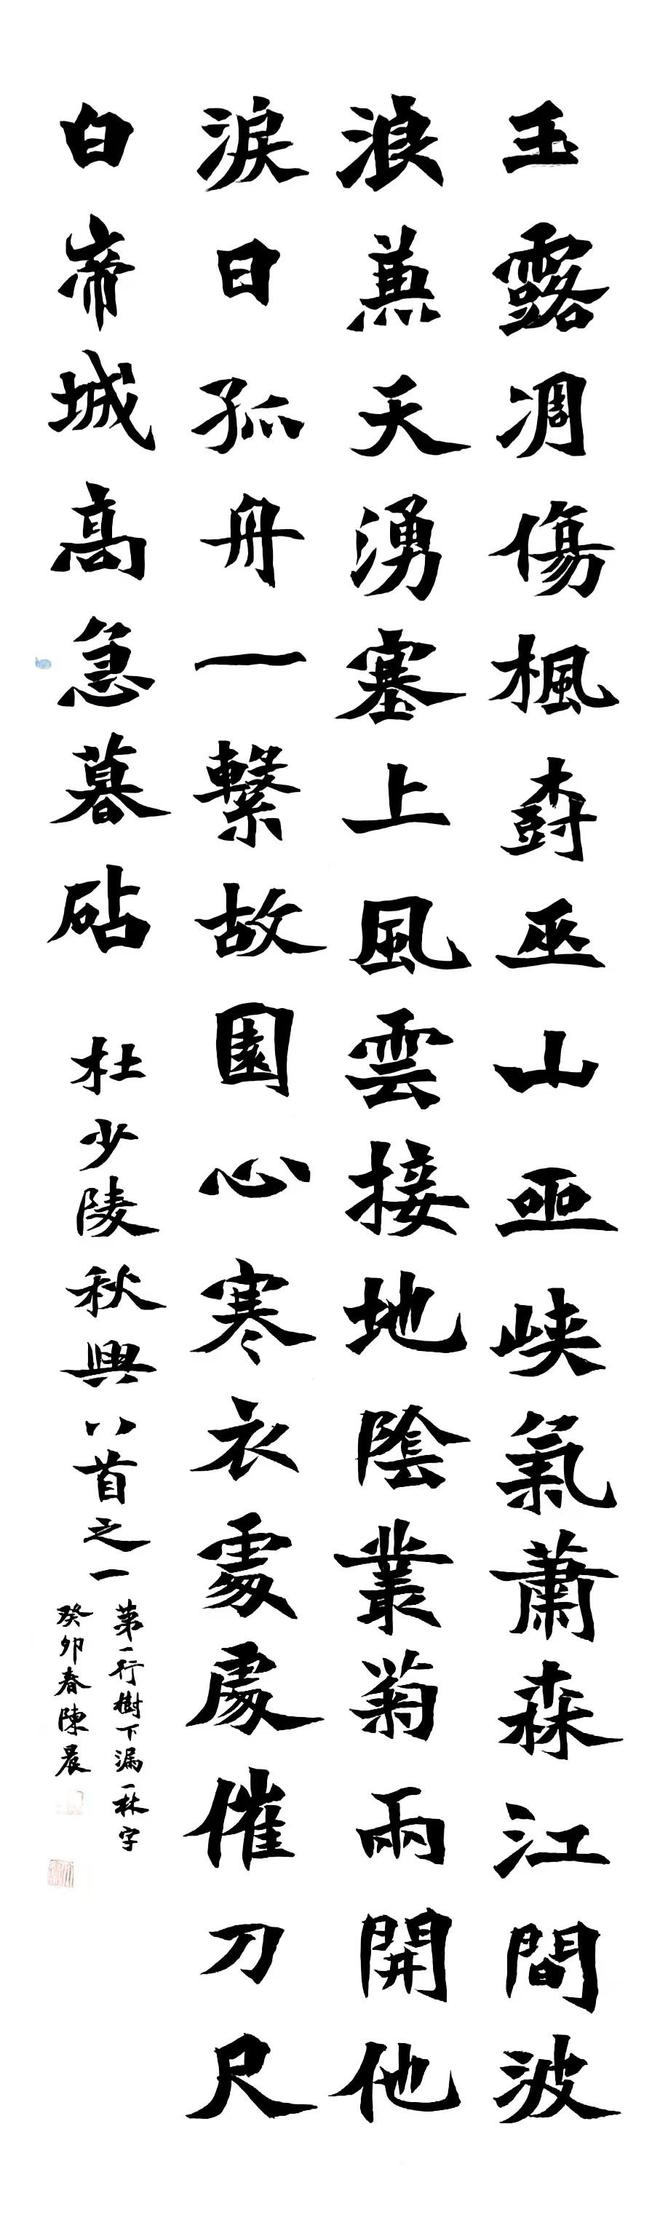 玉露凋傷楓樹巫山巫峽氣蕭森江間波
浪兼天湧塞上風雲接地陰叢菊兩開他
淚日孤舟一繫故園心寒衣處處催刀尺
白帝城高急暮砧 杜少陵秋興八首之一
第一行樹下漏一林字
癸卯春陳晨